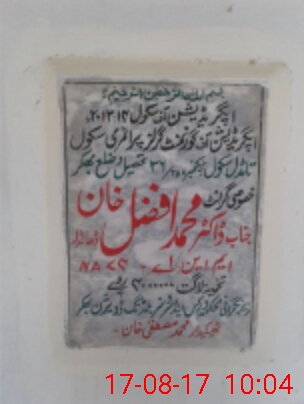 بسم اللہ الرحمٰن الرحیم
اپگریڈیشن آف سکول 2013-14
اپگریڈیشن آف گورنمنٹ گرلز پرائمری سکول
تا مڈل سکول چکنمبر تحصیل و ضلع بھکر
خصوصی گرانٹ
جناب ڈاکٹر محمد افضل خان ڈھانڈلہ
ایم این اے NA
تخمینہ لاگت روپے
زیر نگرانی محکمہ بلڈنگ ڈویژن بھکر
ٹھیکیدار محمد مصطفیٰ خان
17-08-17 10:04